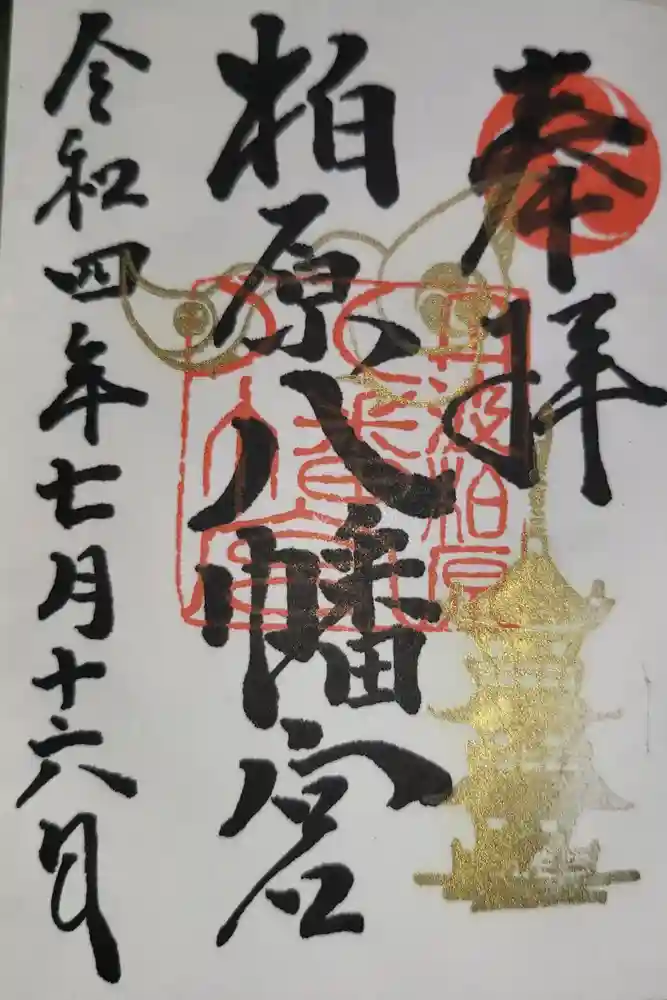 奉拝
柏原八幡宮
令和四年七月十六日
丹波柏原
八幡宮